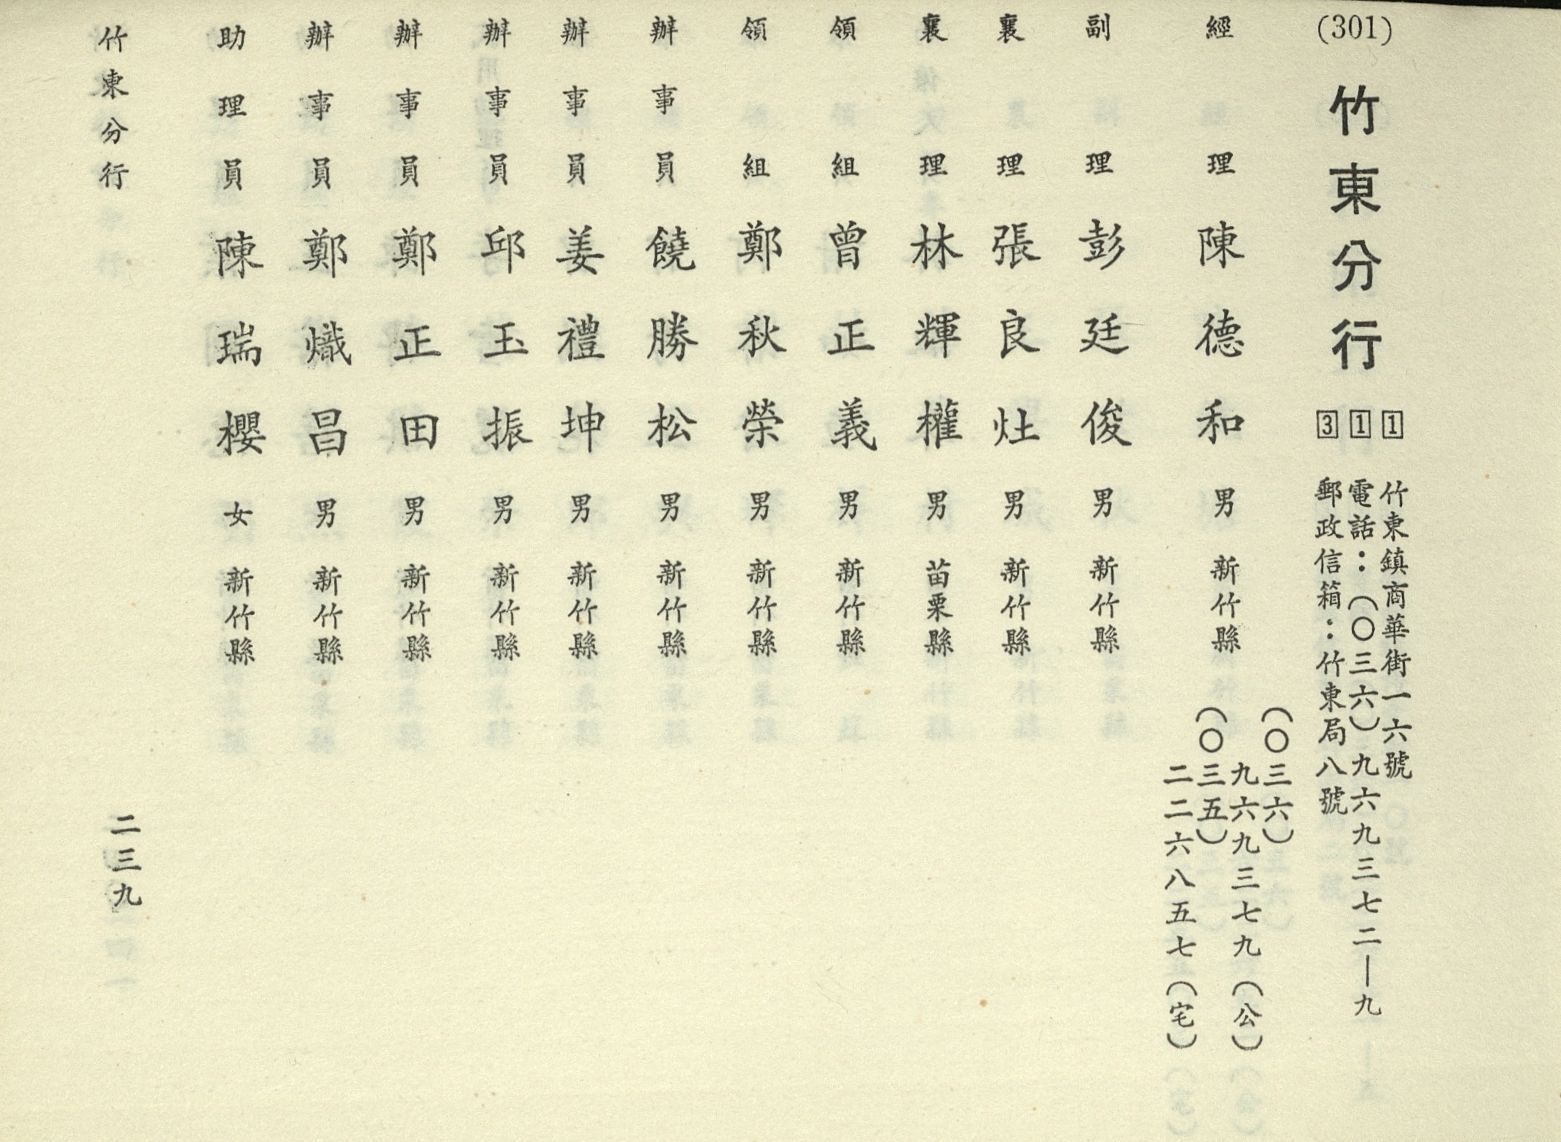 (301)
竹東分行
1 竹東鎮商華街一六號
1 電話：（〇三六）九六九三七二—九
3 郵政信箱：竹東局八號
經理 陳德和 男 新竹縣
（〇三六）
九六九三七九（公）
（〇三五）
二二六八五七（宅）
副理 彭廷俊 男 新竹縣
襄理 張良灶 男 新竹縣
襄理 林輝權 男 苗栗縣
領組 曾正義 男 新竹縣
領組 鄭秋榮 男 新竹縣
辦事員 饒勝松 男 新竹縣
辦事員 姜禮坤 男 新竹縣
辦事員 邱玉振 男 新竹縣
辦事員 鄭正田 男 新竹縣
辦事員 鄭熾昌 男 新竹縣
助理員 陳瑞櫻 女 新竹縣
竹東分行
二三九